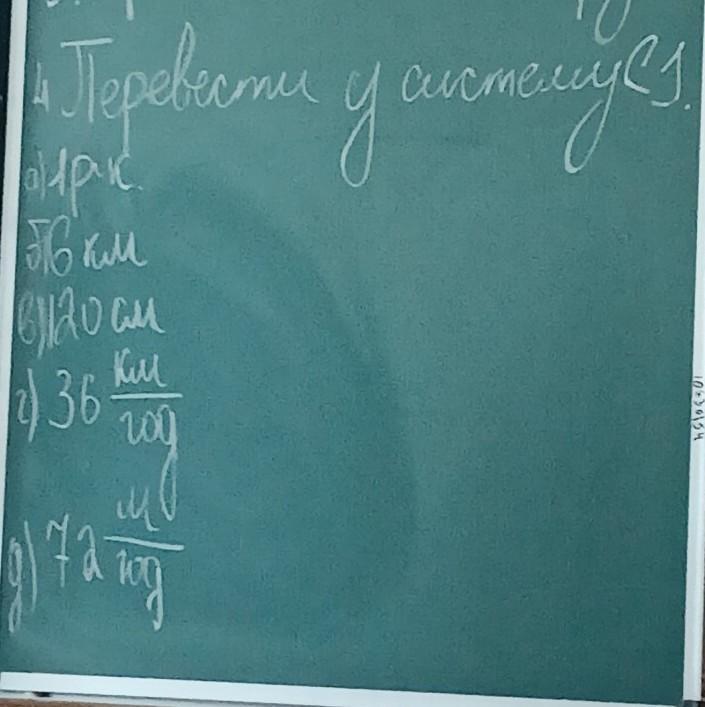 4. Перевести у систему СІ.
а) 1 рік.
б) 6 км
в) 120 см
г) 36 км/год
д) 72 м/год